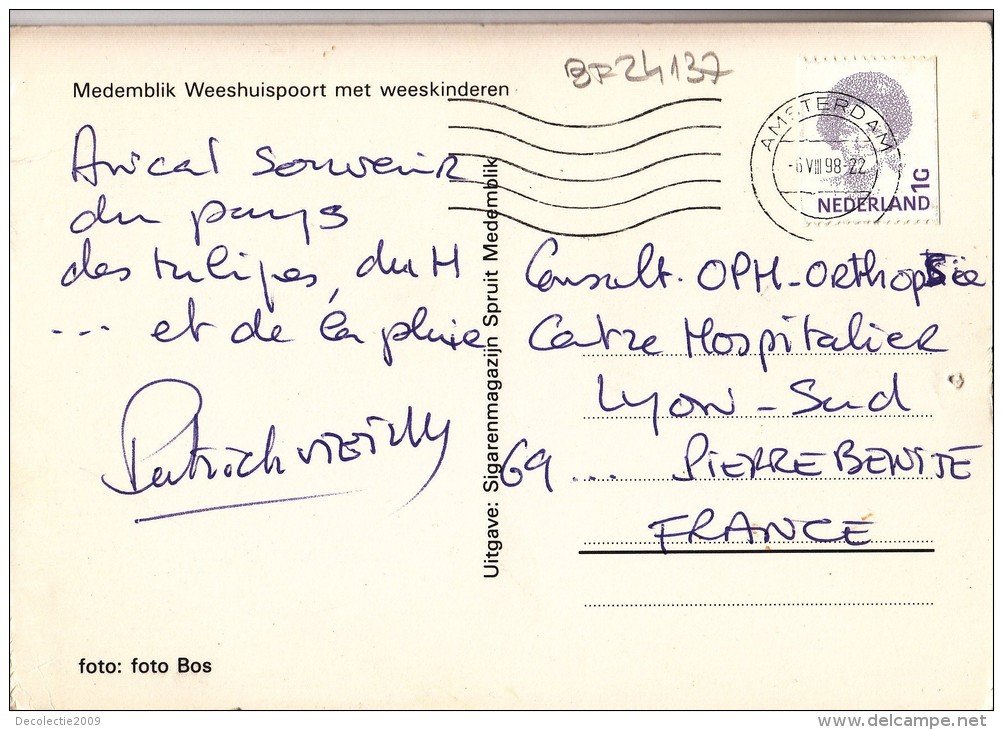 BF24137
Medemblik Weeshuispoort met weeskinderen
AMSTERDAM
-6 VIII 98-22
NEDERLAND 1G
Amical Souvenir
du pays
des tulipes, du H
... et de la pluie
Patrick
Uitgave: Sigarenmagazijn Spruit Medemblik
Consult. OPH-ORTHOPSie
Centre Hospitalier
Lyon-Sud
69... PIERRE BENITE
FRANCE
foto: foto Bos
Decolectie2009
delcampe.net